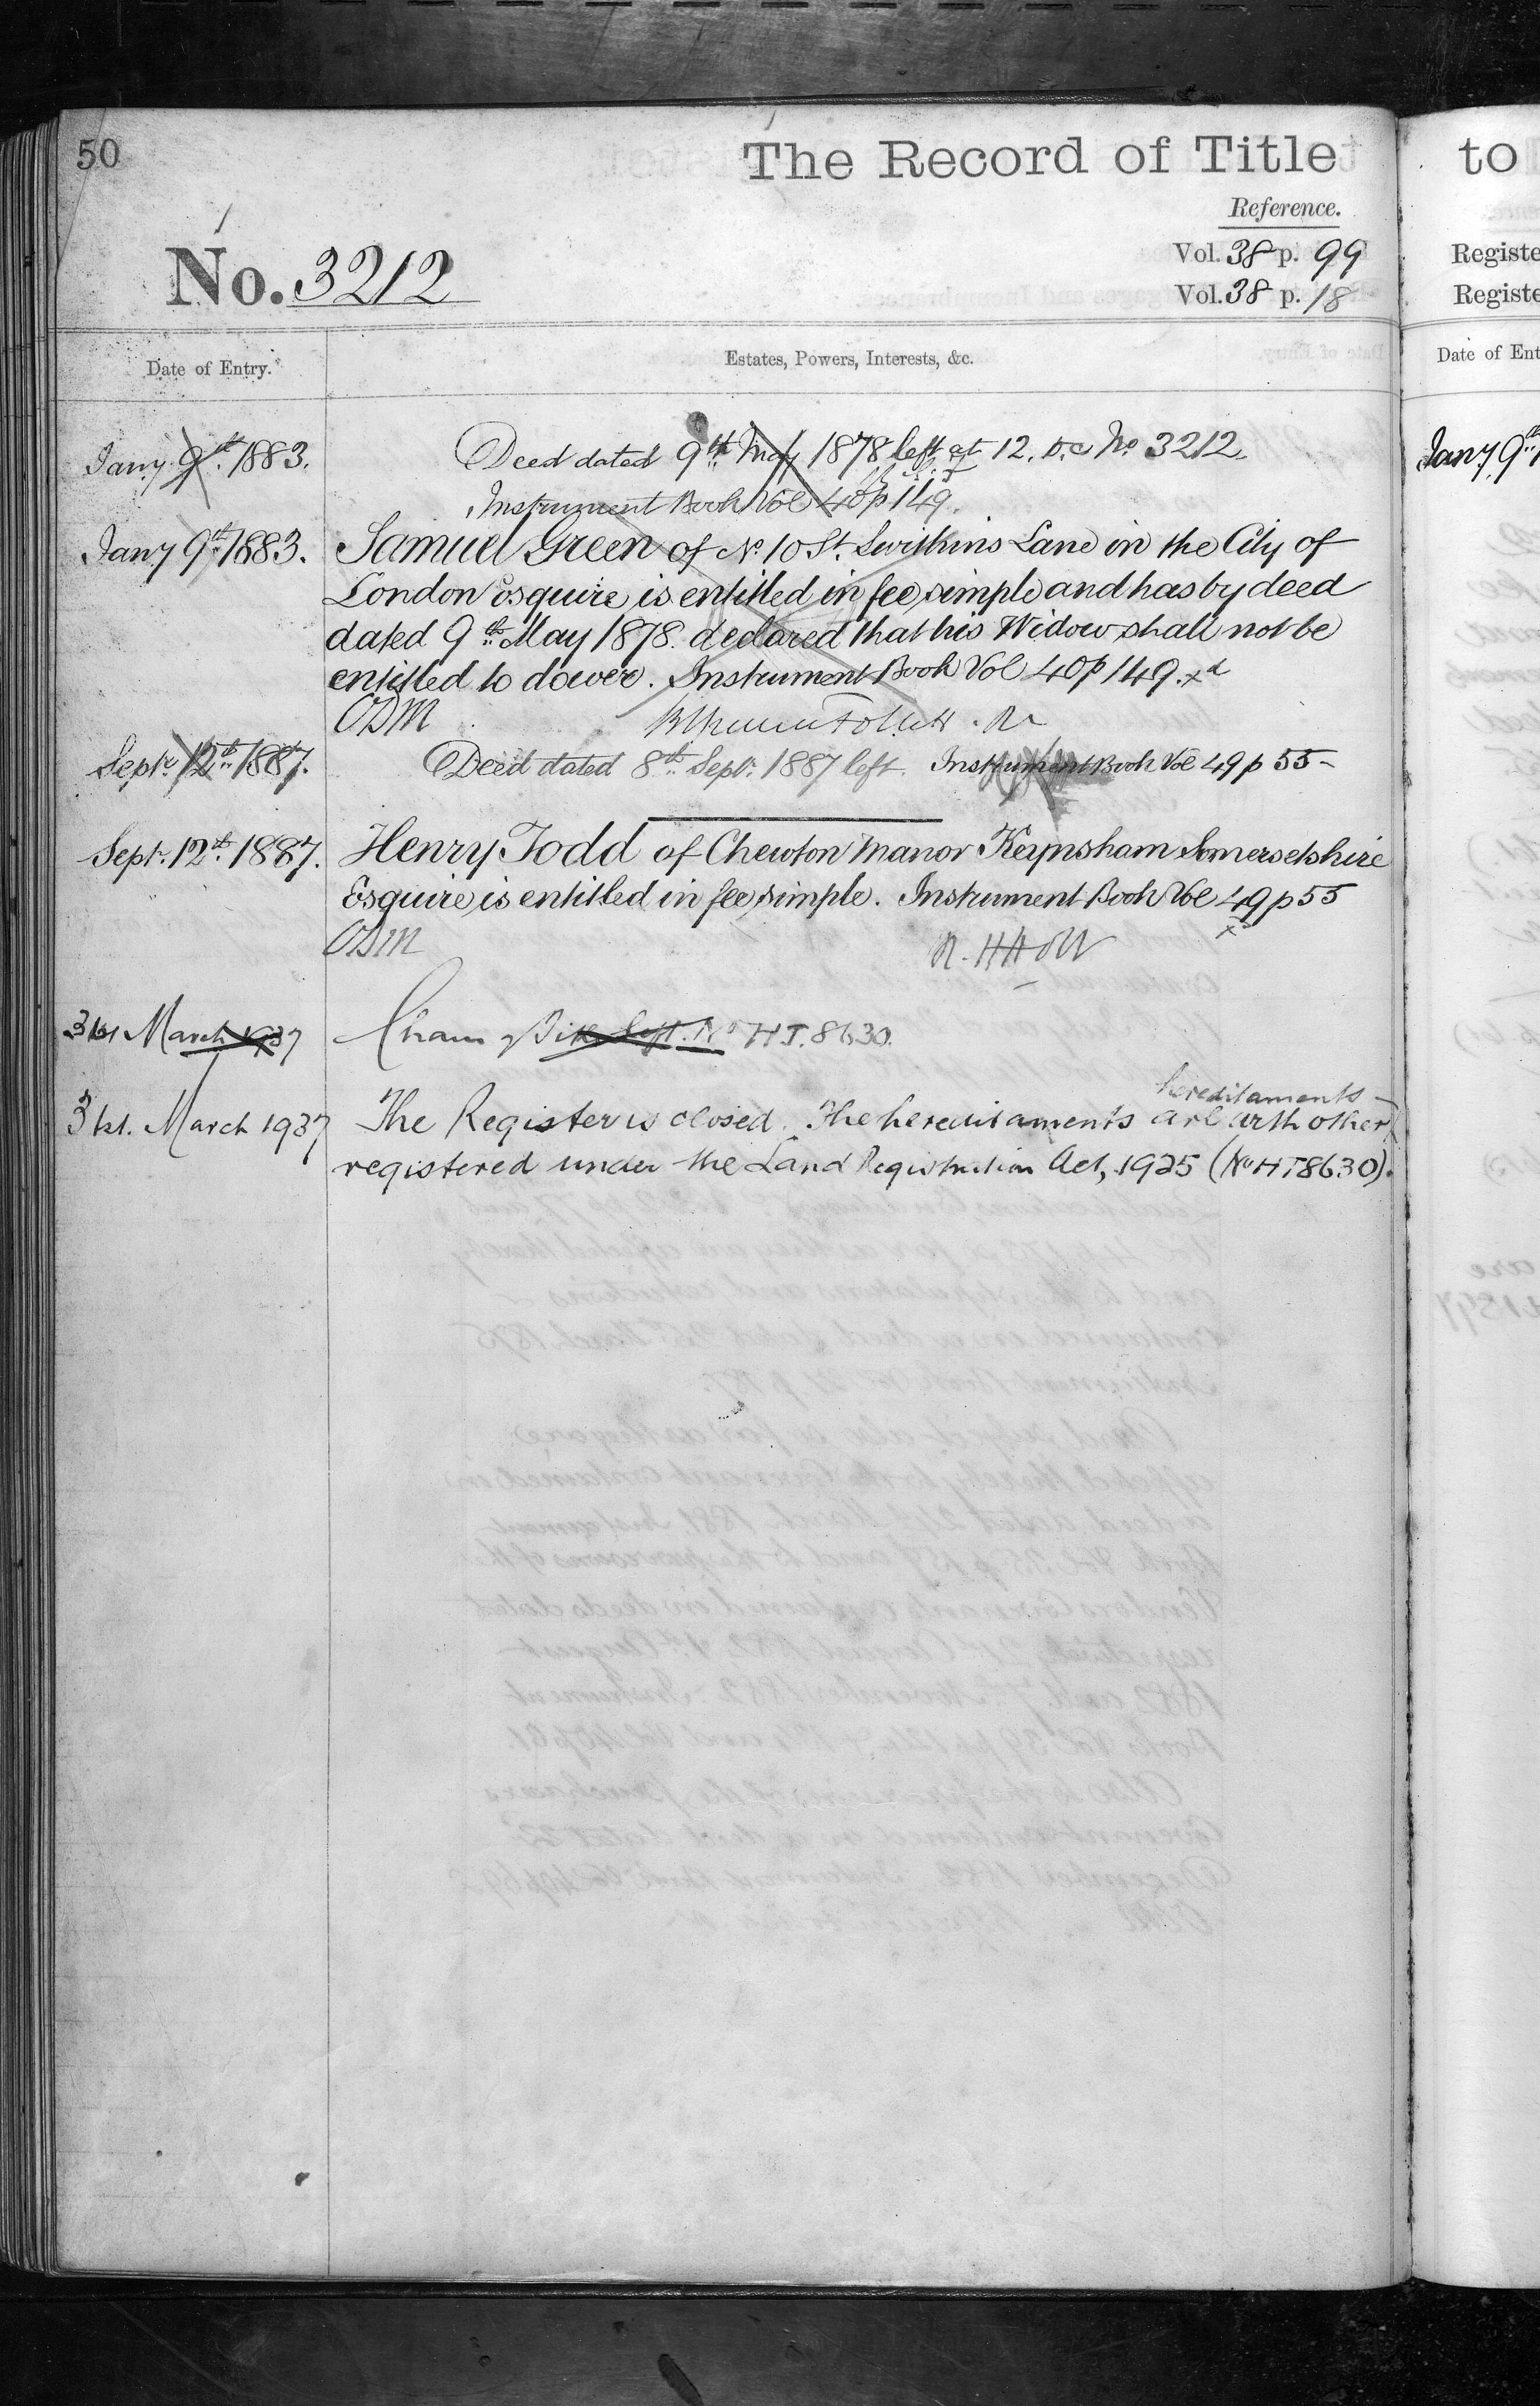 50
The Record of Title
Reference.
No. 3212
Vol. 38 p. 99
Vol. 38 p. 18
Date of Entry.
Estates, Powers, Interests, &c.
Jany. 9th. 1883.
Deed dated 9th May 1878 left at 12. No 3212.
Instrument Book Vol 40 p 149.
Jany 9th 1883.
Samuel Green of No. 10 St. Swithins Lane in the City of
London Esquire is entitled in fee simple and has by deed
dated 9th May 1878 declared that his Widow shall not be
entitled to dower. Instrument Book Vol 40 p 149.
Septr 12th 1887.
Deed dated 8th Sept. 1887 left. Instrument Book Vol 49 p 55-
Sept. 12th 1887.
Henry Todd of Chewton Manor Keynsham Somersetshire
Esquire is entitled in fee simple. Instrument Book Vol 49 p 55
31st March 1937
left. No HT. 8630.
31st. March 1937
The Register is closed. The hereditaments are with other hereditaments
registered under the Land Registration Act, 1925 (No HT8630).
to
Registe
Registe
Date of Ent
Jany. 9th